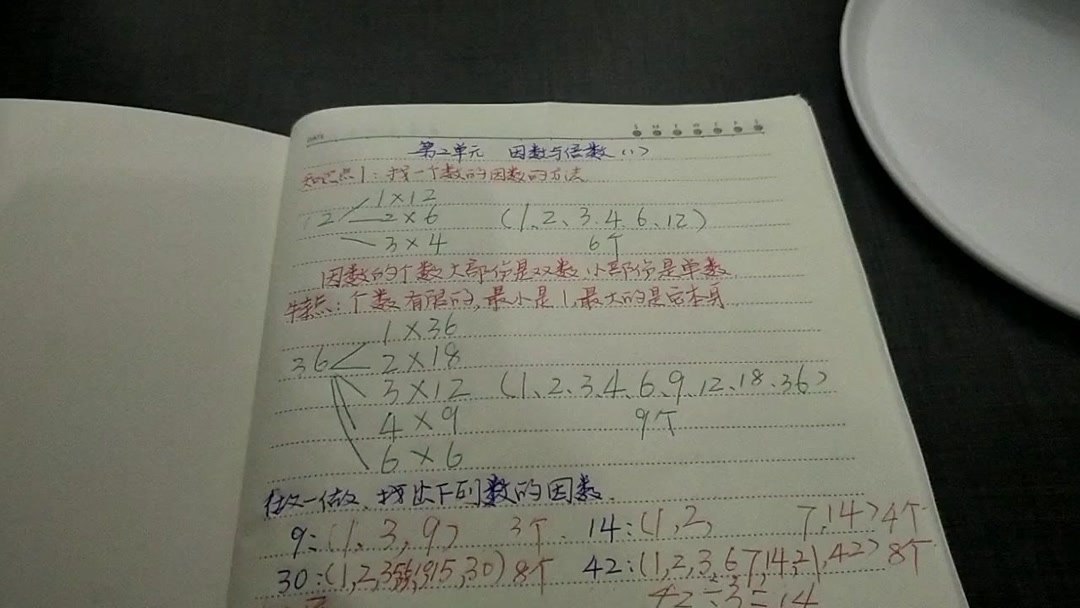 DATE S M T W T F S
第二单元 因数与倍数(1)
知识点1:找一个数的因数的方法
1×12
12 2×6 (1、2、3.4.6、12)
3×4 6个
因数的个数大部份是双数,小部份是单数
特点:个数有限的,最小是1,最大的是它本身
1×36
36 2×18
3×12 (1、2、3、4、6、9、12、18、36)
4×9 9个
6×6
做一做、找出下列数的因数.
9:(1、3,9) 3个 14:(1,2, 7,14)4个
30: 15,30)8个 42:(1,2,3,6,7,14,21,42)8个
42÷3=14